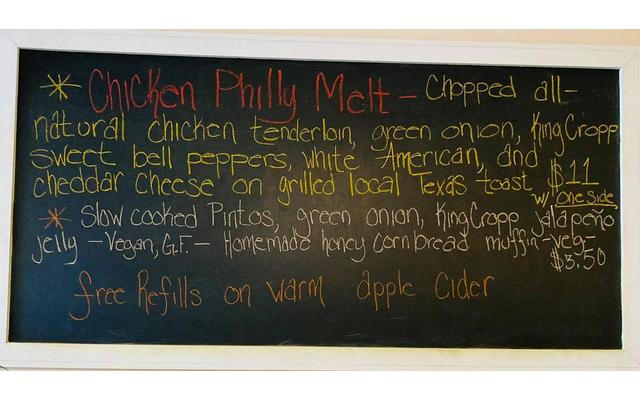 * Chicken Philly Melt - Chopped all-
natural chicken tenderloin, green onion, King Cropp
sweet bell peppers, white American, and
cheddar cheese on grilled local Texas toast $11
w/ one side
* Slow cooked Pintos, green onion, King Cropp jalapeño
jelly - Vegan, G.F. - Homemade honey cornbread muffin - veg-
$3.50
free Refills on warm apple cider